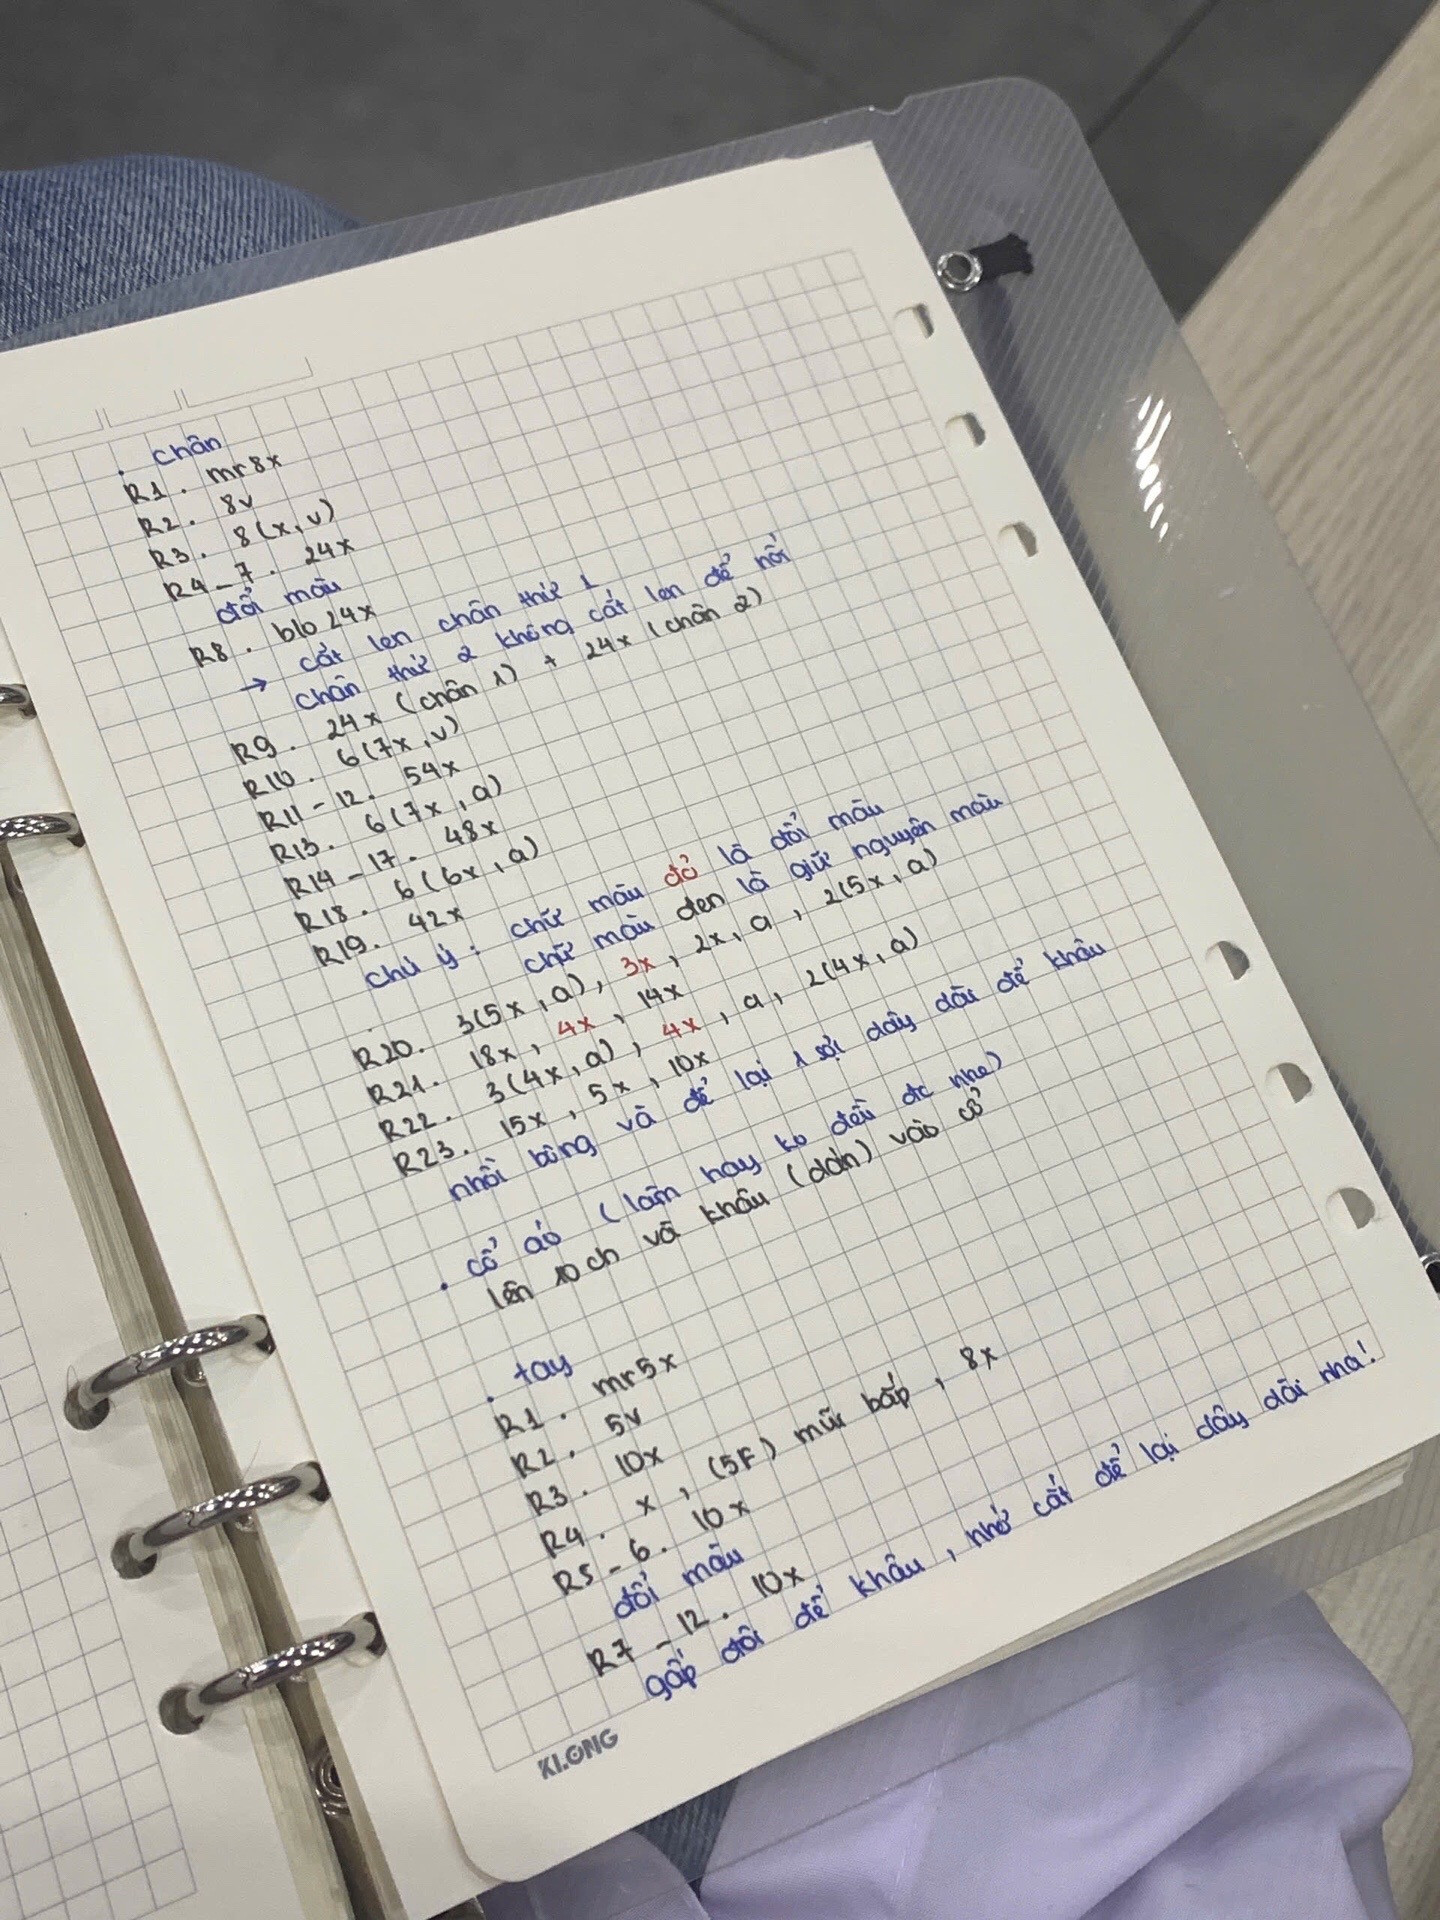 . chân
R1. mr8x
R2. 8v
R3. 8(x,v)
R4-7. 24x
đổi màu
R8. blo 24x
→ cắt len chân thứ 1
chân thứ 2 không cắt len để nối
R9. 24x (chân 1) + 24x (chân 2)
R10. 6(7x,v)
R11-12. 54x
R13. 6(7x,a)
R14-17. 48x
R18. 6(6x,a)
R19. 42x
chú ý: chữ màu đỏ là đổi màu
chữ màu đen là giữ nguyên màu
R20. 3(5x,a), 3x, 2x, a, 2(5x,a)
R21. 18x, 4x, 14x
R22. 3(4x,a), 4x, a, 2(4x,a)
R23. 15x, 5x, 10x
nhồi bông và để lại 1 sợi dây dài để khâu
. cổ áo (làm hay ko đều đc nhe)
lên 10ch và khâu (dán) vào cổ
. tay
R1. mr5x
R2. 5v
R3. 10x
R4. x, (5F) mũi bắp, 8x
R5-6. 10x
đổi màu
R7-12. 10x
gấp đôi để khâu, nhớ cắt để lại dây dài nha!
KLONG